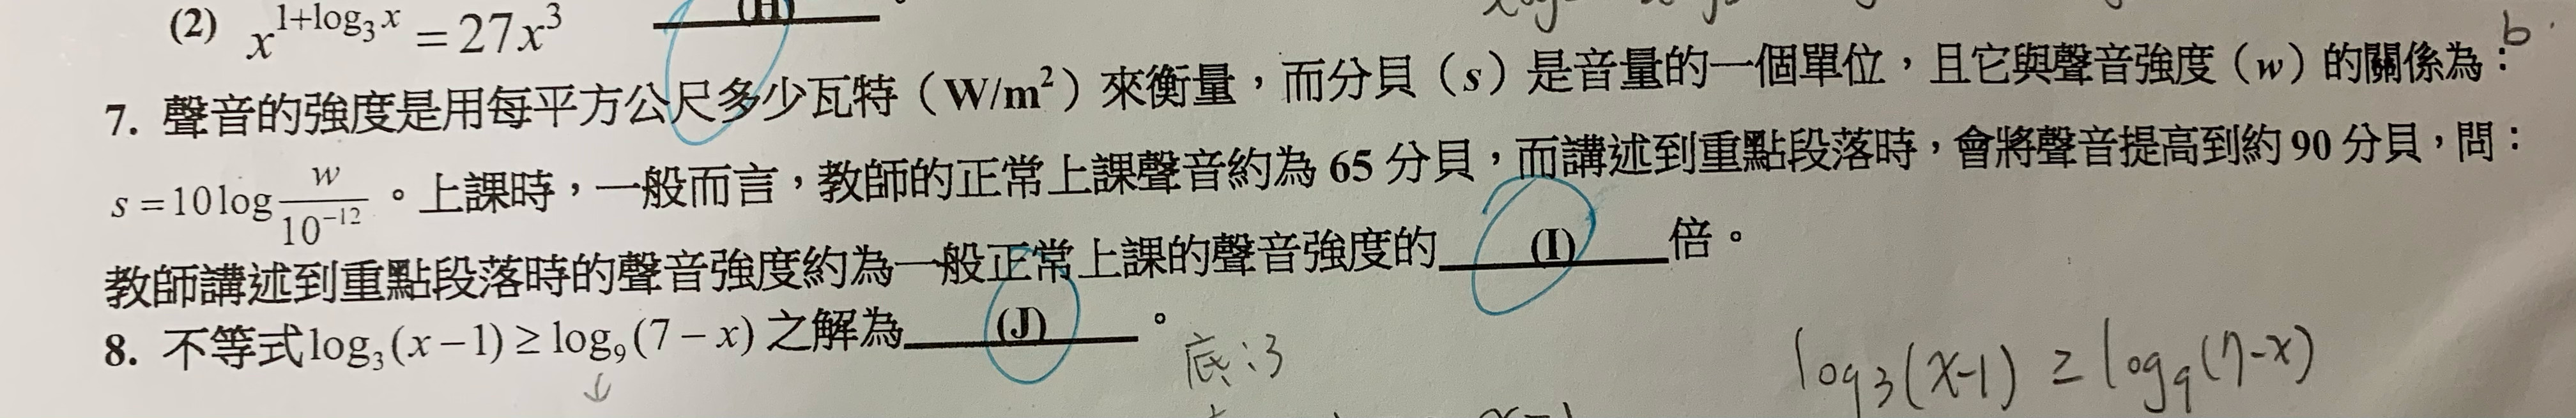 (2) x^{1+log_3 x} = 27x^3 (H) 。
b
7. 聲音的強度是用每平方公尺多少瓦特（W/m²）來衡量，而分貝（s）是音量的一個單位，且它與聲音強度（w）的關係為：
s = 10 log w/10^{-12} 。上課時，一般而言，教師的正常上課聲音約為 65 分貝，而講述到重點段落時，會將聲音提高到約 90 分貝，問：
教師講述到重點段落時的聲音強度約為一般正常上課的聲音強度的 (I) 倍。
8. 不等式 log₃(x−1) ≥ log₉(7−x) 之解為 (J) 。
底:3
log₃(x-1) ≥ log₉(7-x)